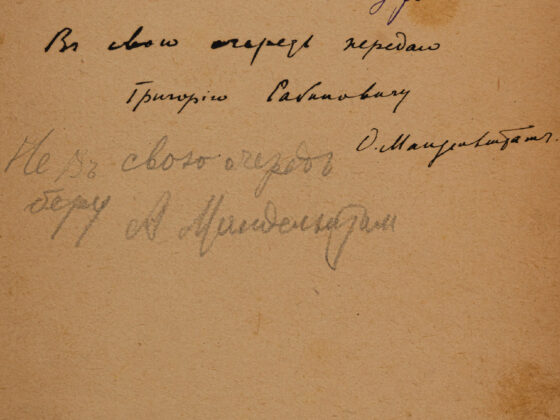 Въ свою очередь передаю
Григорію Рабиновичу
О. Мандельштамъ.
Не въ свою очередь
беру А Мандельштам